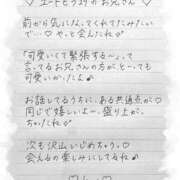 ♡ エードモう29のお兄さん♡
前から気になってくれてたみたい
で…♡やっと会えたね♡
「可愛いくて緊張する〜」って
言ってるお兄さんの方が とっても
可愛いかったよ♪
お話してるうちに、ある共通点が♡
同じで嬉しいよ〜 盛り上がっ
ちゃったね♡
次も沢山いじめちゃう♡
会えるの楽しみにしてるね